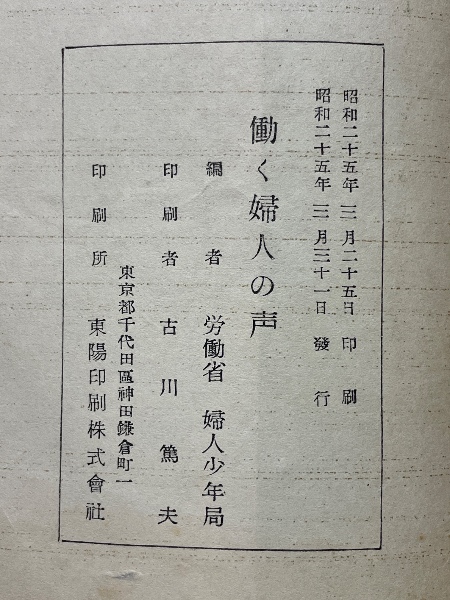 昭和二十五年三月二十五日 印刷
昭和二十五年三月三十一日 發行
働く婦人の声
編者 労働省 婦人少年局
印刷者 古川篤夫
東京都千代田區神田鎌倉町一
印刷所 東陽印刷株式會社